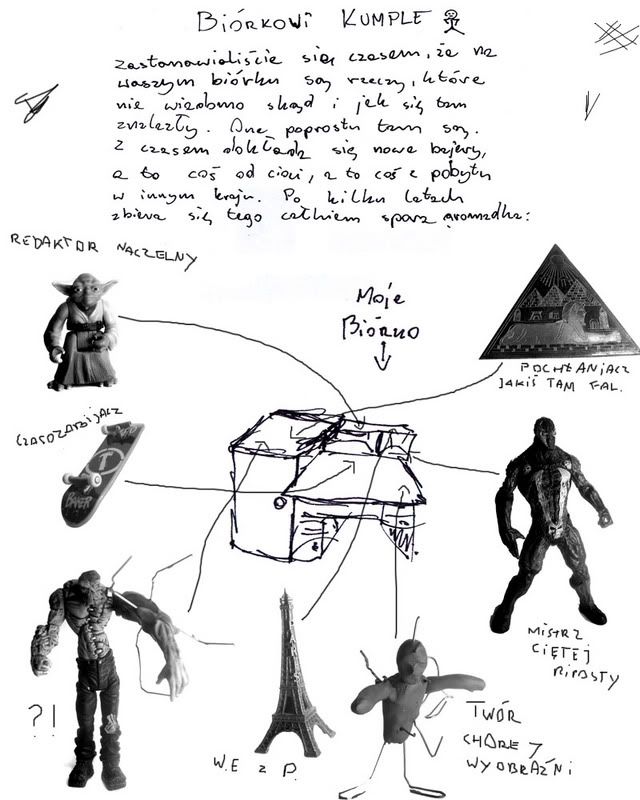 BIÓRKOWI KUMPLE
zastanawialiście się czasem, że na
waszym biórku są rzeczy, które
nie wiadomo skąd i jak się tam
znalazły. One poprostu tam są.
Z czasem dokłada się nowe bajery,
a to coś od cioci, a to coś z pobytu
w innym kraju. Po kilku latach
zbiera się tego całkiem spora gromadka:
REDAKTOR NACZELNY
Moje
Biórko
POCHŁANIACZ
JAKIŚ TAM FAL.
CZASOZABIJACZ
BAKER
MISTRZ
CIĘTEJ
RIPOSTY
?!
W.E z P.
TWÓR
CHOREJ
WYOBRAŹNI